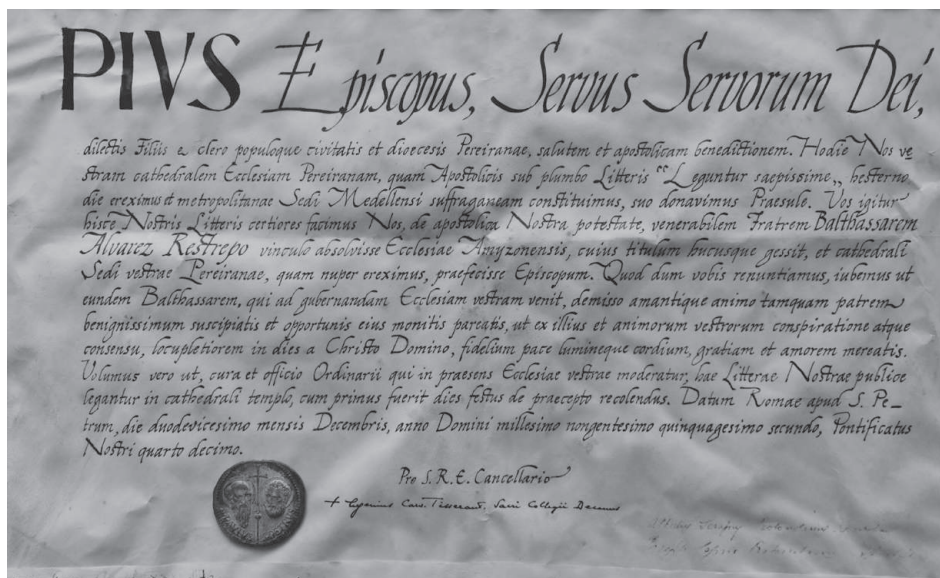 PIVS Episcopus, Servus Servorum Dei,
dilectis Filiis e clero populoque civitatis et dioecesis Pereiranae, salutem et apostolicam benedictionem. Hodie Nos ve
stram cathedralem Ecclesiam Pereiranam, quam Apostolicis sub plumbo Litteris "Leguntur saepissime„ hesterno
die ereximus et metropolitanae Sedi Medellensi suffraganeam constituimus, suo donavimus Praesule. Vos igitur
hisce Nostris Litteris certiores facimus Nos, de apostolica Nostra potestate, venerabilem Fratrem Balthassarem
Alvarez Restrepo vinculo absolvisse Ecclesiae Amyzonensis, cuius titulum hucusque gessit, et cathedrali
Sedi vestrae Pereiranae, quam nuper ereximus, praefecisse Episcopum. Quod dum vobis renuntiamus, iubemus ut
eundem Balthassarem, qui ad gubernandam Ecclesiam vestram venit, demisso amantique animo tamquam patrem
benignissimum suscipiatis et opportunis eius monitis pareatis, ut ex illius et animorum vestrorum conspiratione atque
consensu, locupletiorem in dies a Christo Domino, fidelium pace lumineque cordium, gratiam et amorem mereatis.
Volumus vero ut, cura et officio Ordinarii qui in praesens Ecclesiae vestrae moderatur, hae Litterae Nostrae publice
legantur in cathedrali templo, cum primus fuerit dies festus de praecepto recolendus. Datum Romae apud S. Pe-
trum, die duodevicesimo mensis Decembris, anno Domini millesimo nongentesimo quinquagesimo secundo, Pontificatus
Nostri quarto decimo.
Pro S.R.E. Cancellario
+ Eugenius Card. Tisserant, Sacri Collegii Decanus